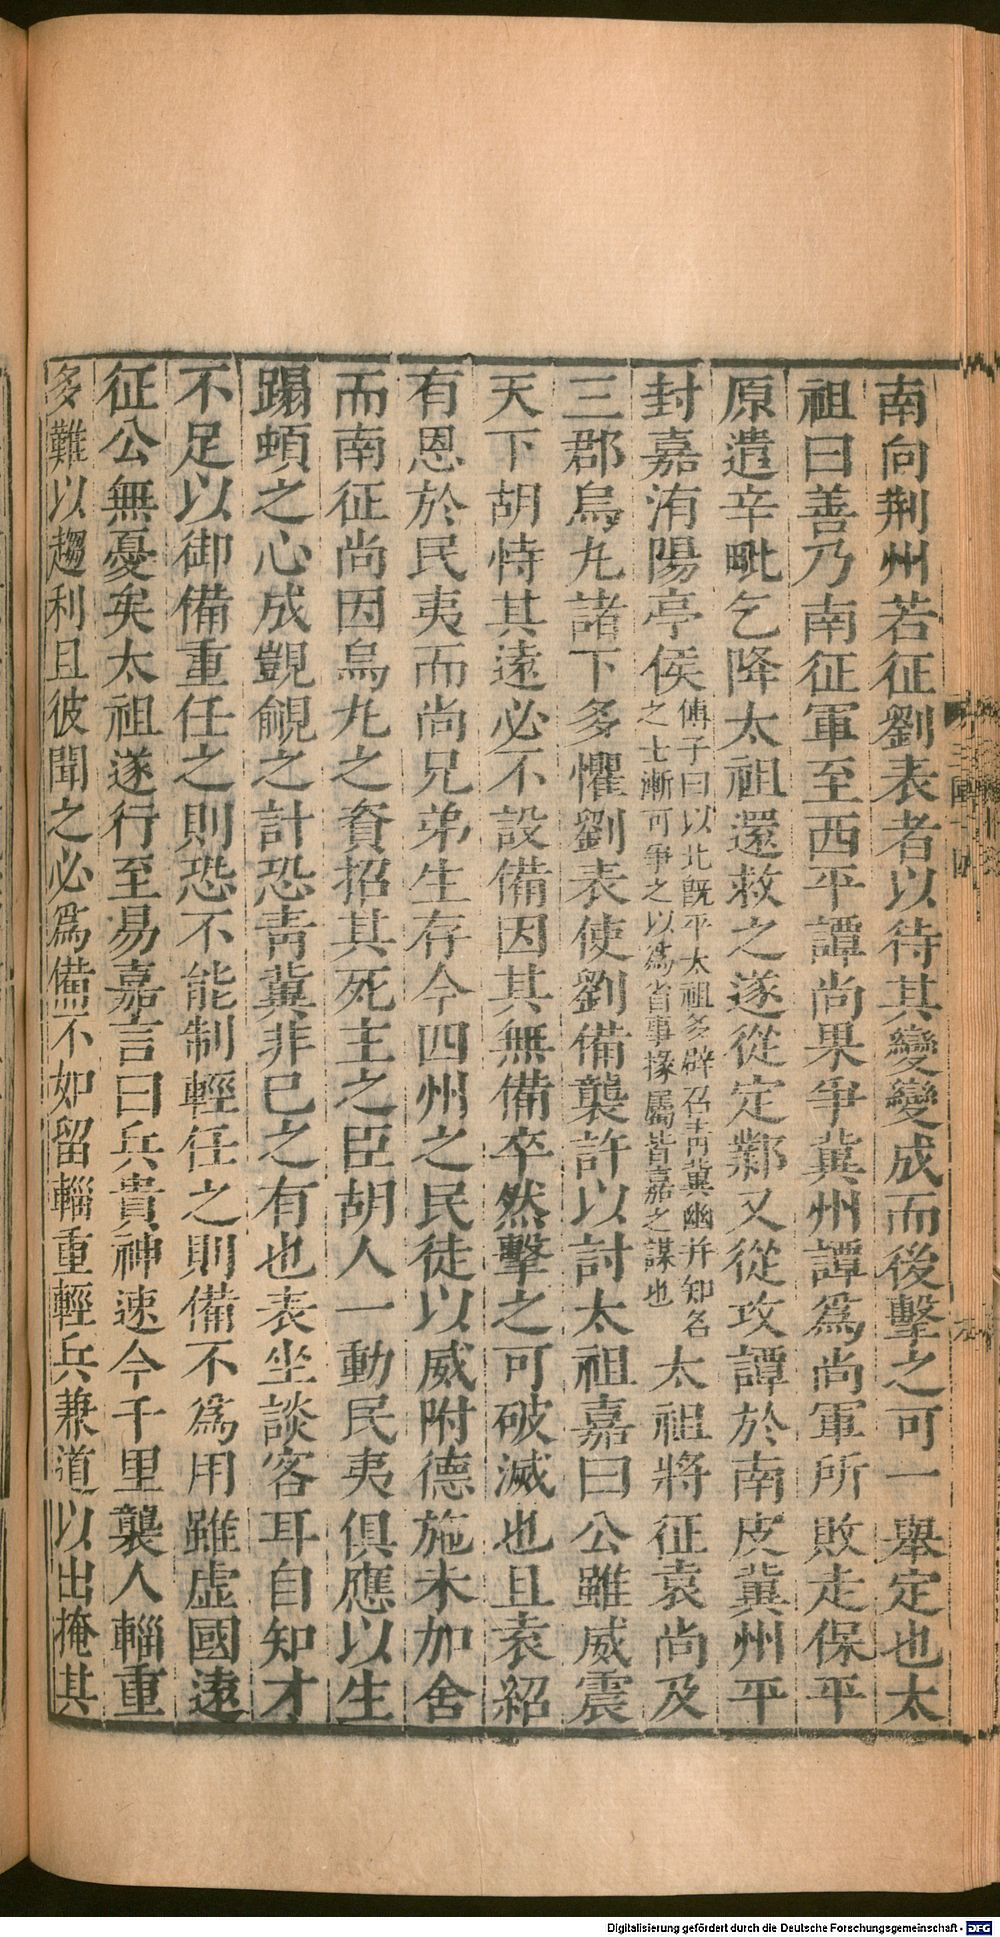 南向荆州若征劉表者以待其變變成而後擊之可一舉定也太
祖曰善乃南征軍至西平譚尚果爭冀州譚爲尚軍所敗走保平
原遣辛毗乞降太祖還救之遂從定鄴又從攻譚於南皮冀州平
封嘉洧陽亭侯
傅子曰以北既平太祖多辟召青冀幽并知名
之士漸可爭之以爲省事掾屬皆嘉之謀也
太祖將征袁尚及
三郡烏丸諸下多懼劉表使劉備襲許以討太祖嘉曰公雖威震
天下胡恃其遠必不設備因其無備卒然擊之可破滅也且袁紹
有恩於民夷而尚兄弟生存今四州之民徒以威附德施未加舍
而南征尚因烏丸之資招其死主之臣胡人一動民夷俱應以生
蹋頓之心成覬覦之計恐靑冀非已之有也表坐談客耳自知才
不足以御備重任之則恐不能制輕任之則備不爲用雖虚國遠
征公無憂矣太祖遂行至易嘉言曰兵貴神速今千里襲人輜重
多難以趨利且彼聞之必爲備不如留輜重輕兵兼道以出掩其
Digitalisierung gefördert durch die Deutsche Forschungsgemeinschaft - DFG